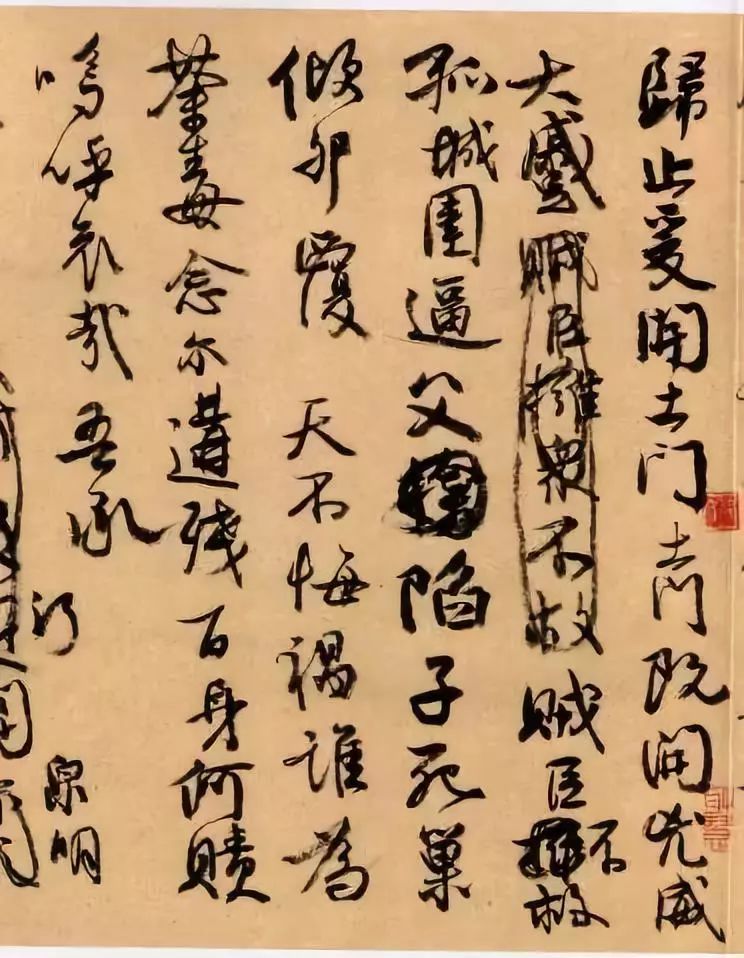 歸止爰開土門土門既開兇威
大蹙賊臣擁衆不救賊臣不救
孤城圍逼父陷子死巢
傾卵覆 天不悔禍誰為
荼毒念爾遘殘百身何贖
嗚呼哀哉吾承
泉明